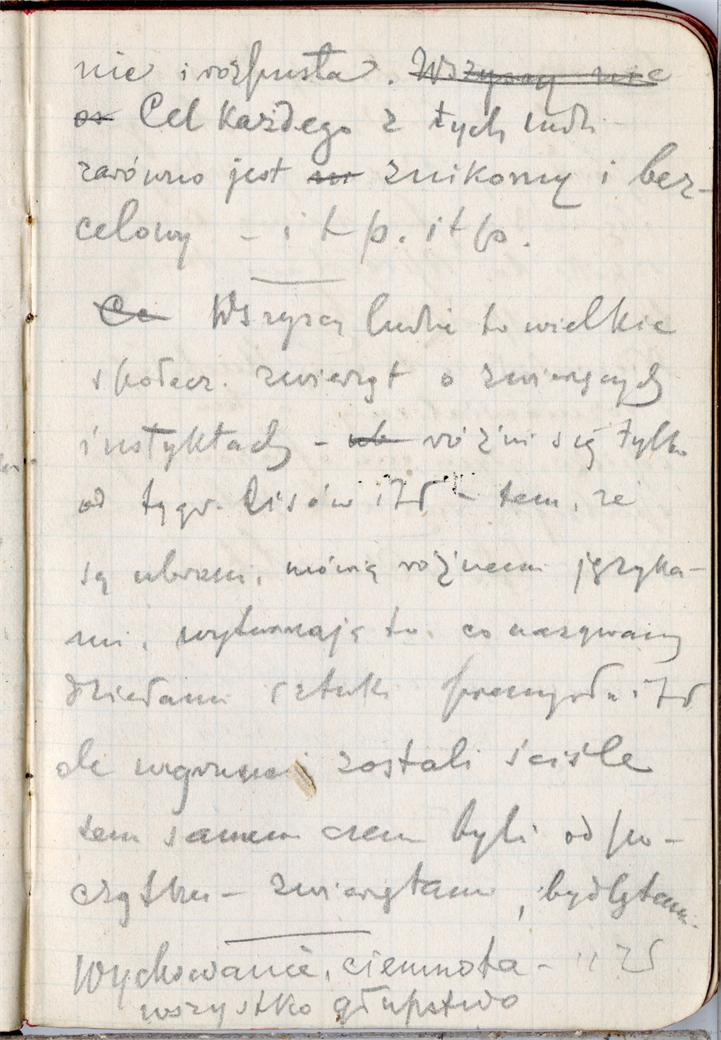 nie i rozpusta. Wszyscy nie
Cel każdego z tych ludzi
zarówno jest znikomy i bez-
celowy – i t p. i t p.
Ce Wszyscy ludzie to wielkie
społecz. zwierząt o zwierzęcych
instyktach – różni się tylko
od tygr. lisów i t d – tem, że
są ubrani, mówią różnemi języka-
mi, wytwarzają to, co nazywamy
dziełami sztuki przemysłu i t d
ale zostali ściśle
tem samem czem byli od po-
czątku – zwierzętami, bydlętami.
Wychowanie, ciemnota – i t d
wszystko głupstwo